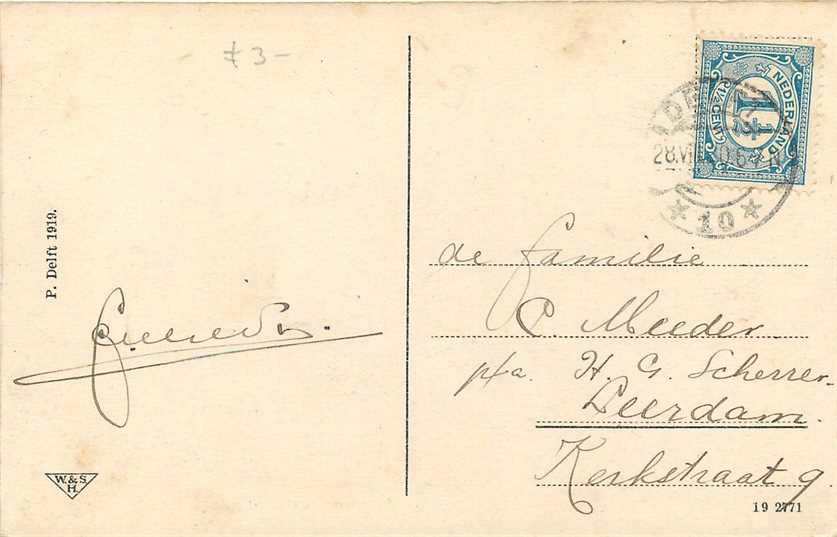 ≠ 3 -
P. Delft 1919.
W. & S.
H.
NEDERLAND
1½ CENT
28.VII
* 10 *
de familie
C. Meeder
p/a. H. G. Scherrer.
Leerdam.
Kerkstraat 9
19 2771